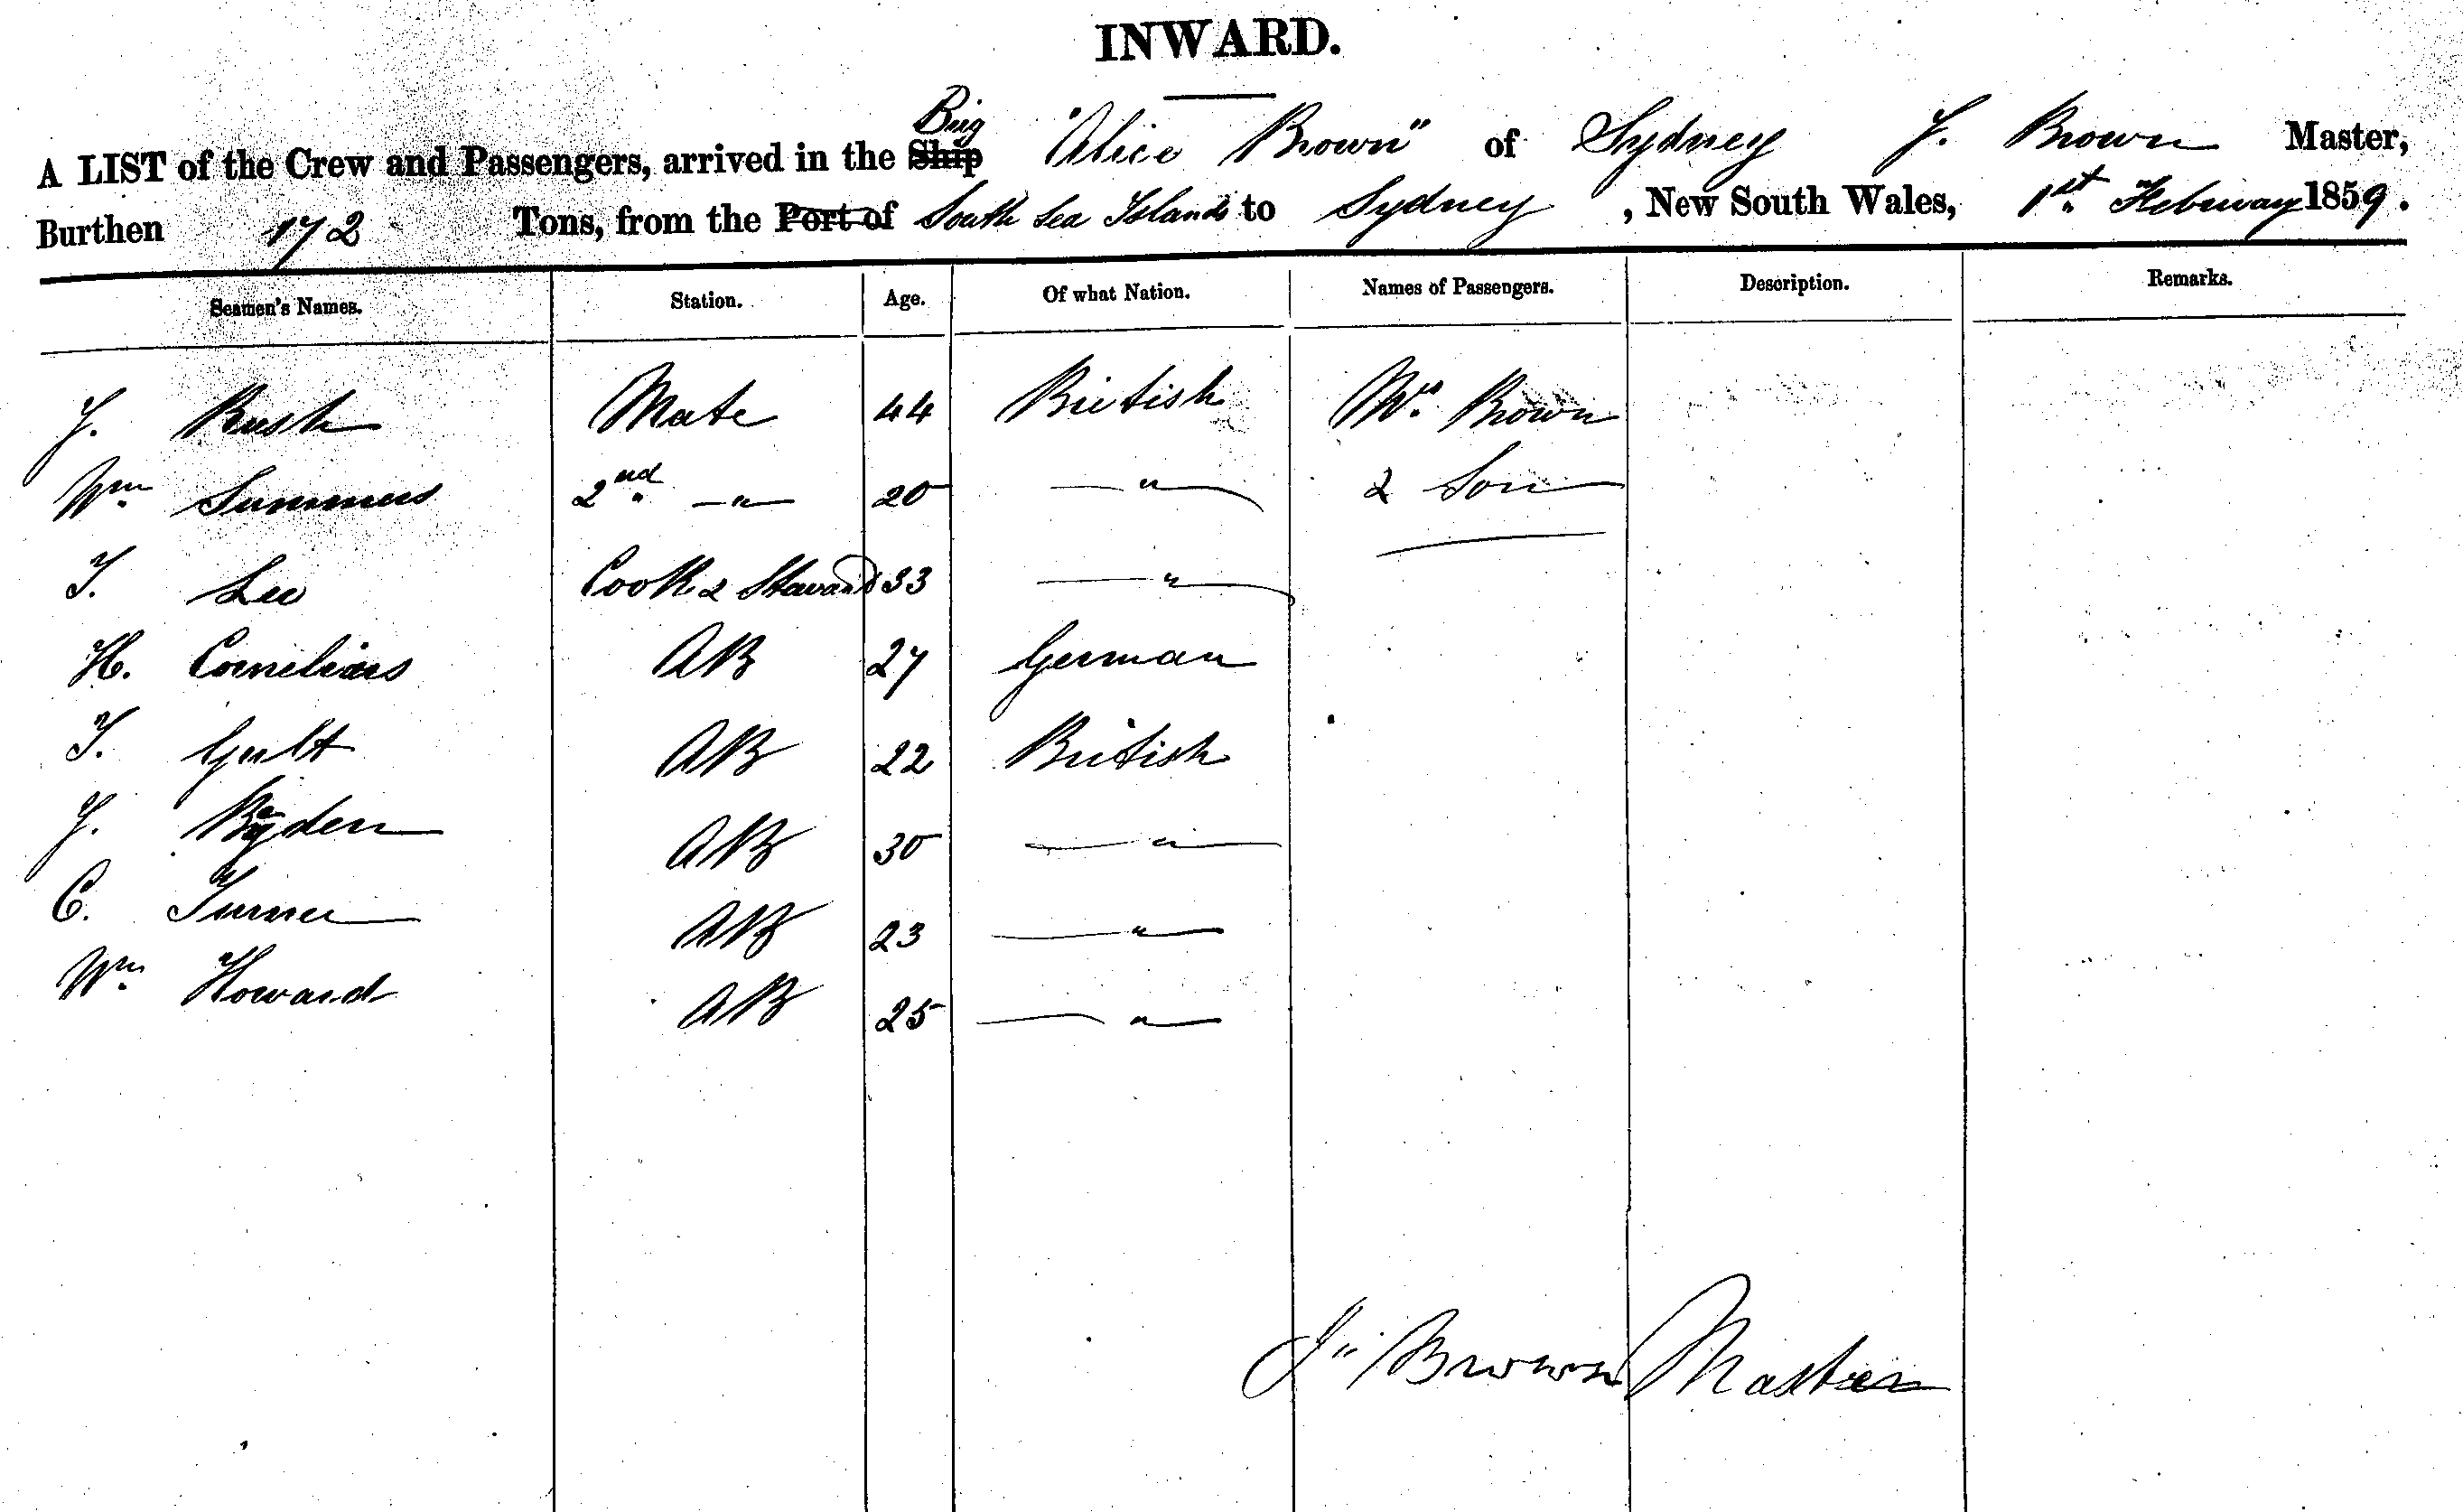 INWARD.
Brig
A LIST of the Crew and Passengers, arrived in the Ship "Alice Brown" of Sydney J. Brown Master,
Burthen 172 Tons, from the Port of South Sea Islands to Sydney, New South Wales, 1st February 1859.
Seamen's Names. Station. Age. Of what Nation. Names of Passengers. Description. Remarks.
J. Rush Mate 44 British Mrs. Brown
Wm. Summers 2nd —"— 20 —"— & Son
T. Lee Cook & Steward 33 —"—
H. Cornelius AB 27 German
T. AB 22 British
J. AB 30 —"—
C. Turner AB 23 —"—
Wm. Howard AB 25 —"—
J" Brown Master